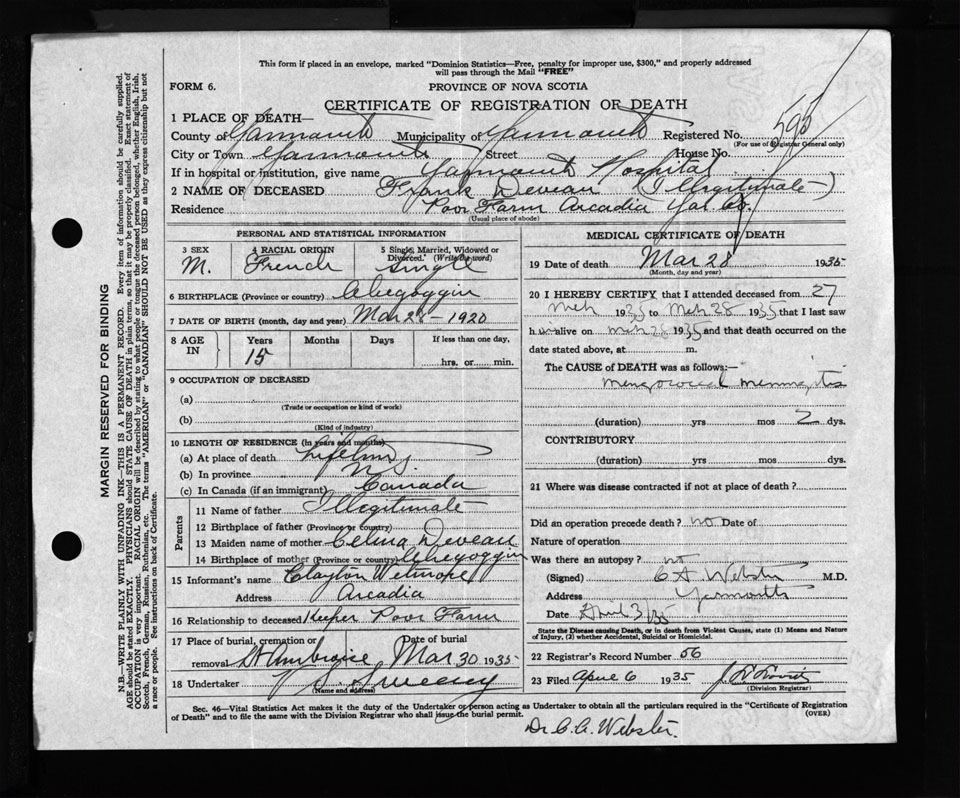 This form if placed in an envelope, marked "Dominion Statistics—Free, penalty for improper use, $300," and properly addressed
will pass through the Mail "FREE"
FORM 6. PROVINCE OF NOVA SCOTIA
CERTIFICATE OF REGISTRATION OF DEATH
1 PLACE OF DEATH—
County of Yarmouth Municipality of Yarmouth Registered No. 595
(For use of Registrar General only)
City or Town Yarmouth Street House No.
If in hospital or institution, give name Yarmouth Hospital
2 NAME OF DECEASED Frank Deveau (Illegitimate)
Residence Poor Farm Arcadia Yar Co.
(Usual place of abode)
PERSONAL AND STATISTICAL INFORMATION
3 SEX 4 RACIAL ORIGIN 5 Single, Married, Widowed or
Divorced. (Write the word)
M. French Single
6 BIRTHPLACE (Province or country) Chegoggin
7 DATE OF BIRTH (month, day and year) Mar 28 - 1920
8 AGE IN Years Months Days If less than one day,
15 hrs. or min.
9 OCCUPATION OF DECEASED
(a)
(Trade or occupation or kind of work)
(b)
(Kind of industry)
10 LENGTH OF RESIDENCE (in years and months)
(a) At place of death
(b) In province N.S.
(c) In Canada (if an immigrant) Canada
Parents
11 Name of father Illegitimate
12 Birthplace of father (Province or country)
13 Maiden name of mother Celina Deveau
14 Birthplace of mother (Province or country) Chegoggin
15 Informant's name Clayton Wetmore
Address Arcadia
16 Relationship to deceased Keeper Poor Farm
17 Place of burial, cremation or Date of burial
removal St Ambroise Mar 30 1935
18 Undertaker V S Sweeny
(Name and address)
MEDICAL CERTIFICATE OF DEATH
19 Date of death Mar 28 1935
(Month, day and year)
20 I HEREBY CERTIFY that I attended deceased from 27
Mch 1935 to Mch 28 1935 that I last saw
him alive on Mch 28 1935 and that death occurred on the
date stated above, at m.
The CAUSE of DEATH was as follows:—
meningitis
(duration) yrs mos 2 dys.
CONTRIBUTORY
(duration) yrs mos dys.
21 Where was disease contracted if not at place of death?
Did an operation precede death? no Date of
Nature of operation
Was there an autopsy? no
(Signed) C A Webster M.D.
Address Yarmouth
Date April 3/35
State the Disease causing Death, or in death from Violent Causes, state (1) Means and
Nature of Injury, (2) whether Accidental, Suicidal or Homicidal.
22 Registrar's Record Number 56
23 Filed April 6 1935
(Division Registrar)
Sec. 46—Vital Statistics Act makes it the duty of the Undertaker or person acting as Undertaker to obtain all the particulars required in the "Certificate of Registration
of Death" and to file the same with the Division Registrar who shall issue the burial permit. (OVER)
Dr. C. A. Webster.
MARGIN RESERVED FOR BINDING
N.B.—WRITE PLAINLY WITH UNFADING INK—THIS IS A PERMANENT RECORD. Every item of information should be carefully supplied.
AGE should be stated EXACTLY. PHYSICIANS should STATE CAUSE OF DEATH in plain terms, so that it may be properly classified. Exact statement of
OCCUPATION is very important. RACIAL ORIGIN will be described by stating to what people or tongue the deceased person belonged, whether English, Irish,
Scotch, French, German, Russian, Ruthenian, etc. The terms "AMERICAN" or "CANADIAN" SHOULD NOT BE USED as they express citizenship but not
a race or people. See instructions on back of Certificate.